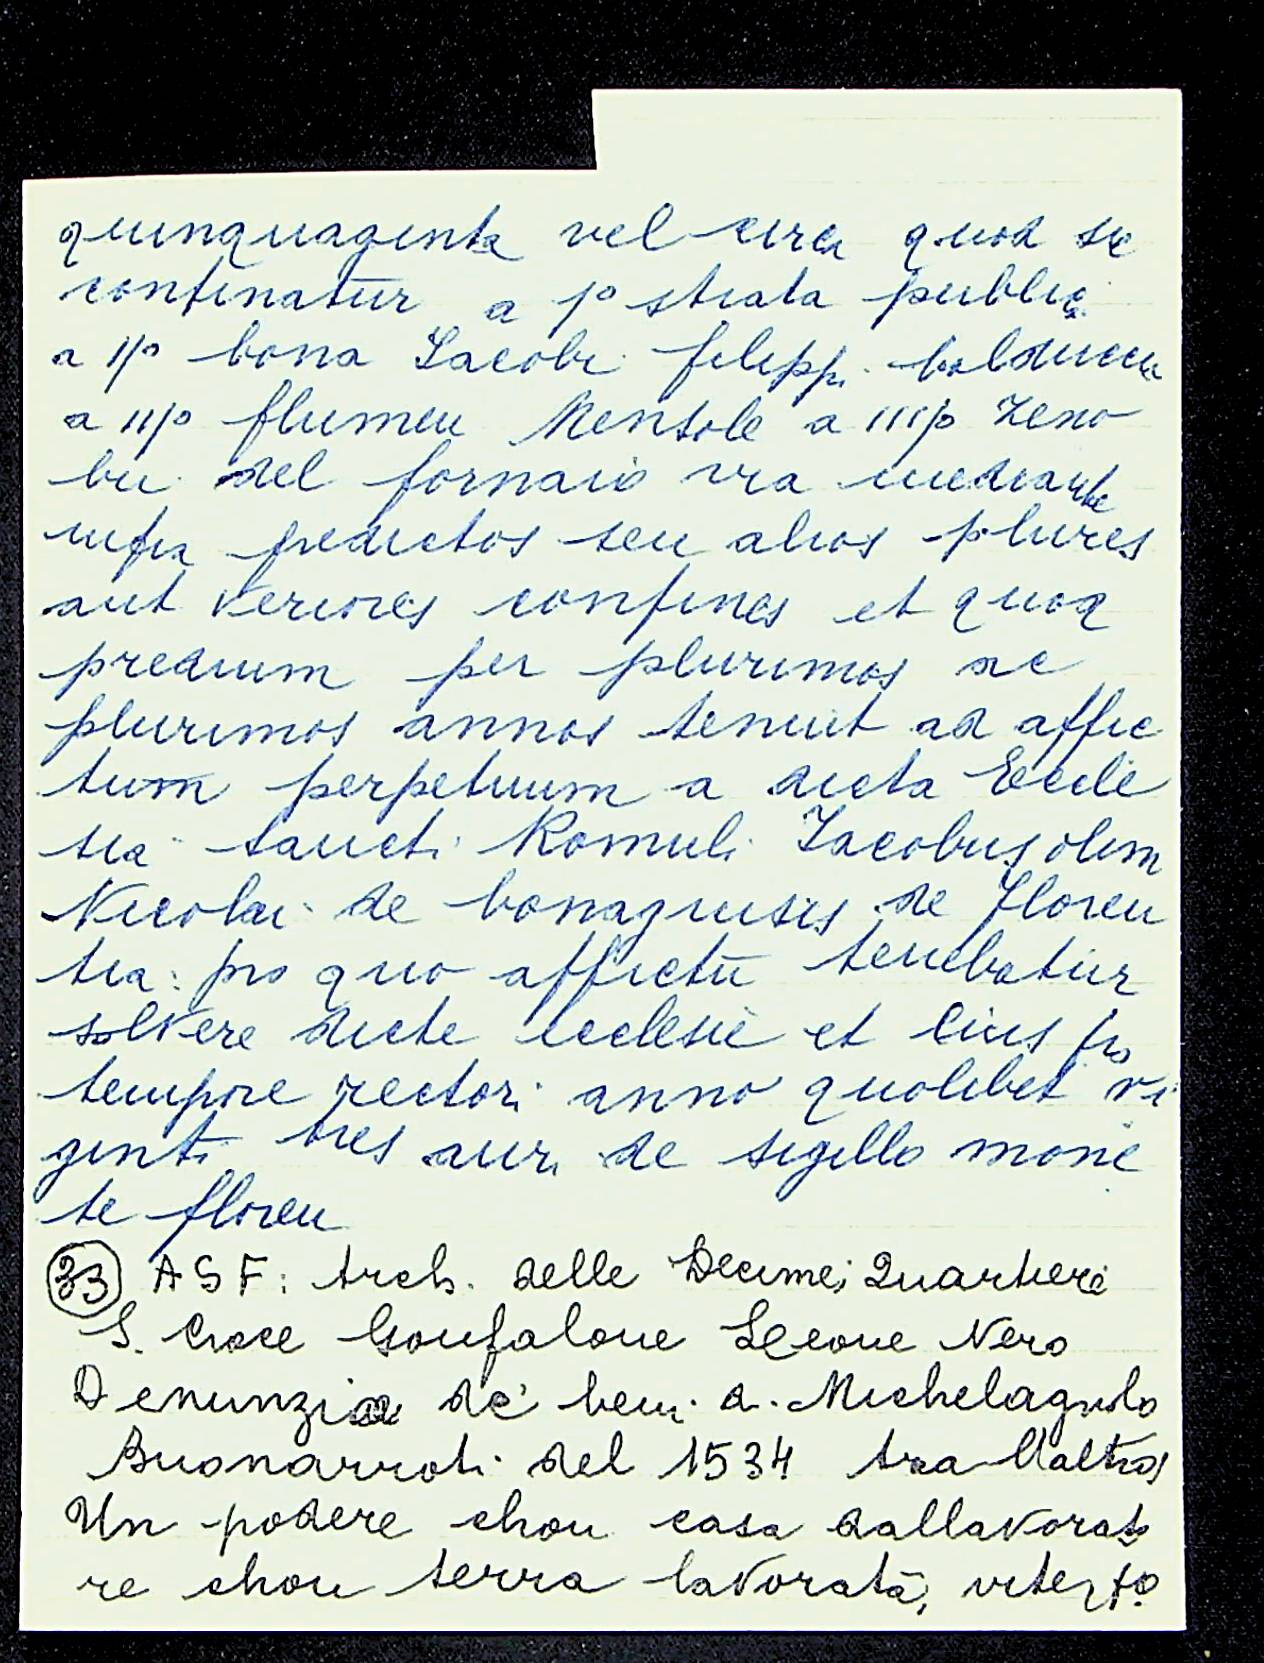 quinquaginta vel circa quod sic
confinatur a p° strata publica
a IJ° bona Iacobi filippi balducci
a IIJ° flumen Mensole a IIIJ° Zeno
bii del fornaio via mediante
infra predictos seu alios plures
aut veriores confines et quod
predium per plurimos ac
plurimos annos tenuit ad affic
tum perpetuum a dicta Eccle
sia sancti Romuli Iacobus olim
Nicolai de bonaguisis de Floren
tia: pro quo affictu tenebatur
solvere dicte ecclesie et eius pro
tempore rectori anno quolibet vi
ginti tres auri de sigillo mone
te floren
33 ASF: Arch. delle Decime; Quartiere
S. Croce Gonfalone Leone Nero
Denunzia de' beni di Michelagnolo
Buonarroti del 1534 tra l'altro;
Un podere chon casa dallavorato
re chon terra lavorata,